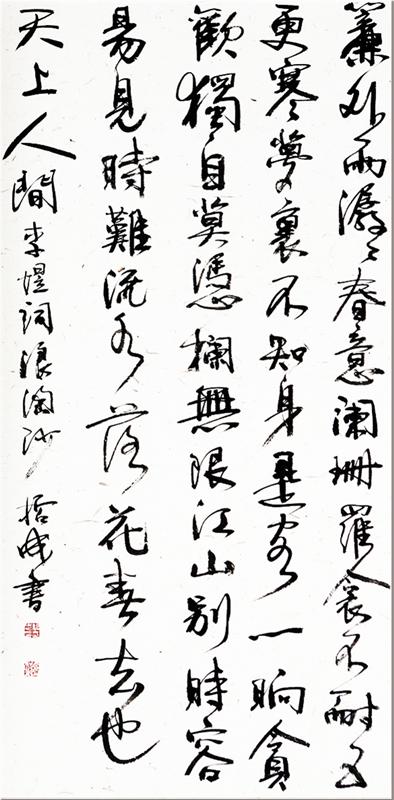 簾外雨潺々春意闌珊羅衾不耐五
更寒夢裏不知身是客一晌貪
歡獨自莫憑欄無限江山別時容
易見時難流水落花春去也
天上人間 李煜詞浪淘沙 書